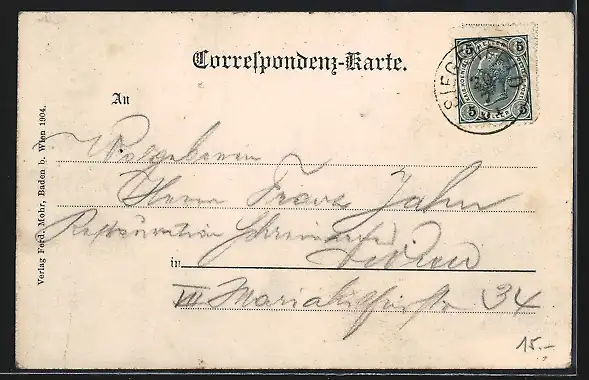 Correspondenz-Karte.
5 5
5 5
SIEG
An
Wolgeboren
Herrn Franz Jahn
Restauration
in Wien
VII Mariahilferstr 34
Verlag Ferd. Mohr, Baden b. Wien 1904.
15.-